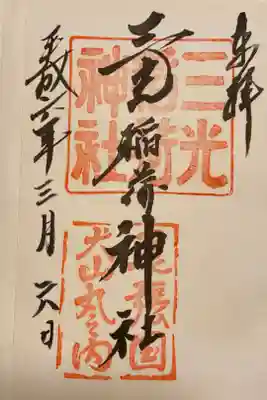 奉拝
三光稲荷神社
平成六年三月六日
三光
稲荷
神社
尾張国
犬山丸之内